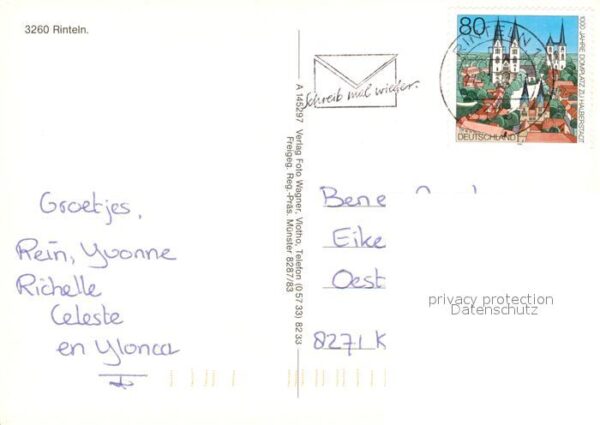 3260 Rinteln.
Groetjes,
Rein, Yvonne
Richelle
Celeste
en Ylonca
A 145297 Verlag Foto Wagner, Vlotho, Telefon (0 57 33) 82 33
Freigeg. Reg.-Präs. Münster 8287/83
Schreib mal wieder.
RINTELN 1
80
1000 JAHRE DOMPLATZ ZU HALBERSTADT
DEUTSCHLAND
Bene
Eike
Oest
8271 K
privacy protection
Datenschutz